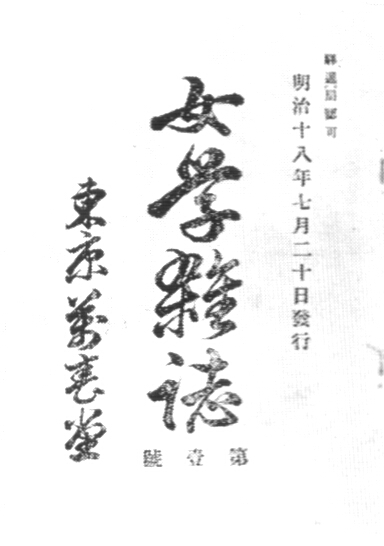 驛遞局認可
明治十八年七月二十日發行
女學雜誌
第壹號
東京萬春堂